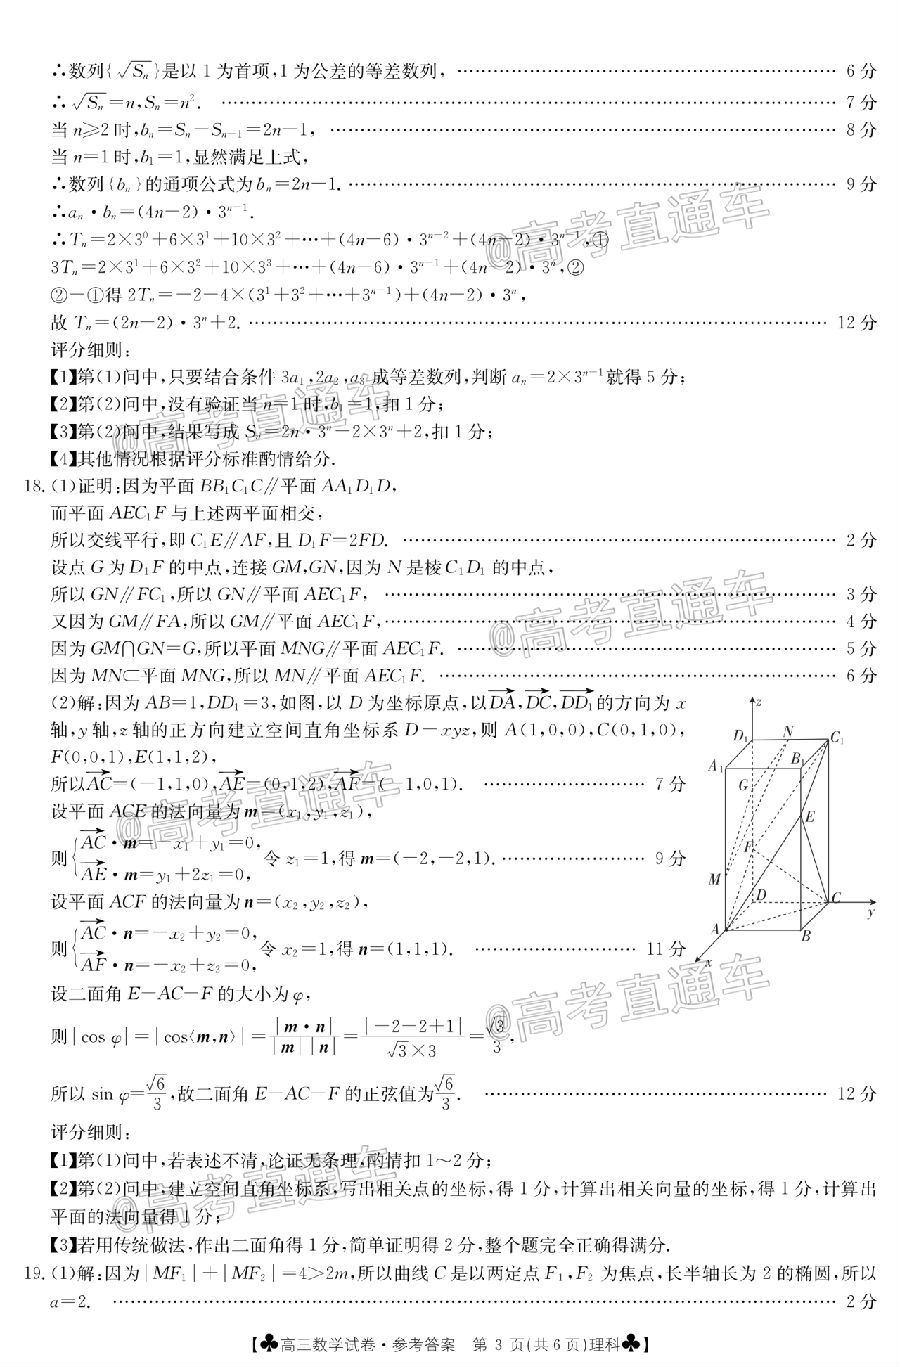 ∴数列{√Sₙ}是以1为首项,1为公差的等差数列, …… 6分
∴√Sₙ=n,Sₙ=n². …… 7分
当n≥2时,bₙ=Sₙ-Sₙ₋₁=2n-1, …… 8分
当n=1时,b₁=1,显然满足上式,
∴数列{bₙ}的通项公式为bₙ=2n-1. …… 9分
∴aₙ·bₙ=(4n-2)·3ⁿ⁻¹.
∴Tₙ=2×3⁰+6×3¹+10×3²+…+(4n-6)·3ⁿ⁻²+(4n-2)·3ⁿ⁻¹,①
3Tₙ=2×3¹+6×3²+10×3³+…+(4n-6)·3ⁿ⁻¹+(4n-2)·3ⁿ,②
②-①得2Tₙ=-2-4×(3¹+3²+…+3ⁿ⁻¹)+(4n-2)·3ⁿ,
故Tₙ=(2n-2)·3ⁿ+2. …… 12分
评分细则:
【1】第(1)问中,只要结合条件3a₁,2a₂,a₃成等差数列,判断aₙ=2×3ⁿ⁻¹就得5分;
【2】第(2)问中,没有验证当n=1时,b₁=1,扣1分;
【3】第(2)问中,结果写成Sₙ=2n·3ⁿ-2×3ⁿ+2,扣1分;
【4】其他情况根据评分标准酌情给分.
18.(1)证明:因为平面BB₁C₁C∥平面AA₁D₁D,
而平面AEC₁F与上述两平面相交,
所以交线平行,即C₁E∥AF,且D₁F=2FD. …… 2分
设点G为D₁F的中点,连接GM,GN,因为N是棱C₁D₁的中点,
所以GN∥FC₁,所以GN∥平面AEC₁F, …… 3分
又因为GM∥FA,所以GM∥平面AEC₁F, …… 4分
因为GM∩GN=G,所以平面MNG∥平面AEC₁F. …… 5分
因为MN⊂平面MNG,所以MN∥平面AEC₁F. …… 6分
(2)解:因为AB=1,DD₁=3,如图,以D为坐标原点,以DA→,DC→,DD₁→的方向为x
轴,y轴,z轴的正方向建立空间直角坐标系D-xyz,则A(1,0,0),C(0,1,0),
F(0,0,1),E(1,1,2),
所以AC→=(-1,1,0),AE→=(0,1,2),AF→=(-1,0,1). …… 7分
设平面ACE的法向量为m=(x₁,y₁,z₁),
则{AC→·m=-x₁+y₁=0,
AE→·m=y₁+2z₁=0, 令z₁=1,得m=(-2,-2,1). …… 9分
设平面ACF的法向量为n=(x₂,y₂,z₂),
则{AC→·n=-x₂+y₂=0,
AF→·n=-x₂+z₂=0, 令x₂=1,得n=(1,1,1). …… 11分
设二面角E-AC-F的大小为φ,
则|cos φ|=|cos⟨m,n⟩|=|m·n|/|m||n|=|-2-2+1|/(√3×3)=√3/3,
所以sin φ=√6/3,故二面角E-AC-F的正弦值为√6/3. …… 12分
z
D₁ N C₁
A₁ B₁
G
E
F
M
D C
y
A B
x
评分细则:
【1】第(1)问中,若表述不清,论证无条理,酌情扣1~2分;
【2】第(2)问中,建立空间直角坐标系,写出相关点的坐标,得1分,计算出相关向量的坐标,得1分,计算出
平面的法向量得1分;
【3】若用传统做法,作出二面角得1分,简单证明得2分,整个题完全正确得满分.
19.(1)解:因为|MF₁|+|MF₂|=4>2m,所以曲线C是以两定点F₁,F₂为焦点,长半轴长为2的椭圆,所以
a=2. …… 2分
【♣高三数学试卷·参考答案 第3页(共6页)理科♣】
@高考直通车
@高考直通车
@高考直通车
@高考直通车
@高考直通车
@高考直通车